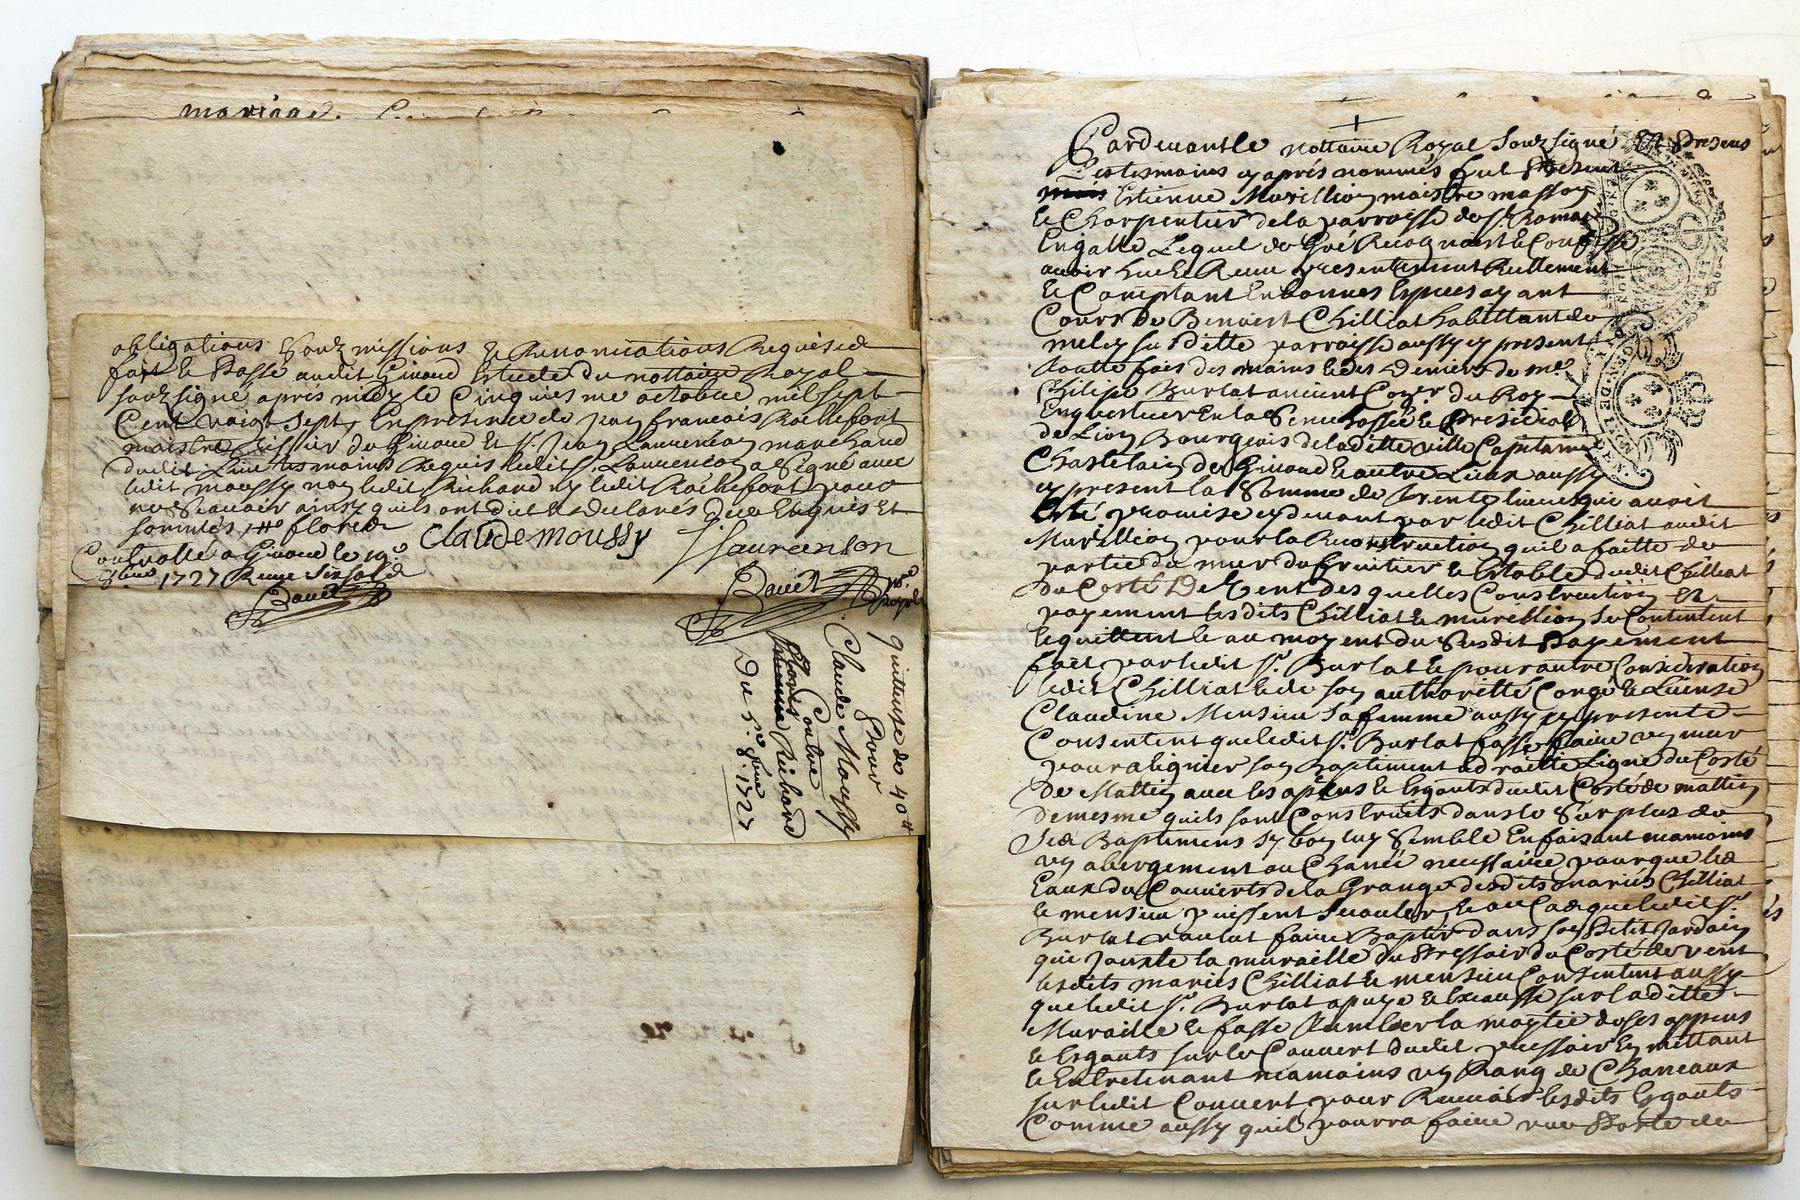 mariage
obligations Soubz missions & Renonciations Requises
fait & Passé audit Givord Estude du nottaire Royal
soubzsigné apres midy le Cinquiesme octobre mil sept
Cent vaingt Sept, En presence de Jean francois Rochefort
maistre du Givord Et Sr. Jean Laurencon marchand
dudit Lieu tesmoins Requis ledit Sr. Laurencon a Signé avec
ledit moussy non ledit Richard ny ledit Rochefort pour
ne Scavoir ainsy quils ont dit & declarés de ce Enquis Et
sommés
Claude moussy J Laurenson
Controllé a Givord le 19e
8bre 1727 Receu Six sols
Bavet
Bavet nre Royal
quittance de 40 tt
Pour
Claude Moussy
Contre
Richard
Du 5e 8bre 1727
Pardevant le nottaire Royal Soubzsigné Et Presens
Les tesmoins cy aprés nommés fut Present
Estienne Murillion maistre masson
& Charpentier de la parroisse de St. Romain
Engalle Lequel de Gré Recognoist & Confesse
avoir heu & Receu presentement Reellement
& Comptant En bonnes Espices ayant
Cours de Benoist Chilliat habittant de
susditte parroisse aussy cy present
toutte fois des mains & des Deniers de me.
Philipe Burlat ancient Coner. du Roy
Enquesteur En la Senechossée & Presidial
de Lion Bourgeois de laditte ville Capitaine
Chastelain de Givord & autres Lieux aussy
cy present la Somme de Trente livres que avoit
Esté promise cy devant par ledit Chilliat audit
Murillion pour la Reconstruction quil a faitte de
partie du mur du fruitier & Estable dudit Chilliat
du Costé De Vent desquelles Construction Et
payement lesdits Chilliat & murillion se Contentent
& quittent & au moyent du Susdit Payement
fait par ledit Sr. Burlat & pour autre Consideration
ledit Chilliat & de son authoritté Congé & Lisense
Claudine Mensieu Sa femme aussy cy presente
Consentent que ledit Sr. Burlat fasse faire un mur
pour alignier son Baptiment a droitte Ligne du Costé
De Mattin avec les apens & Esgouts dudit Costé de mattin
De mesme quils sont Construits dans le Surplus de
Ses Baptimens sy bon luy Semble En faisant neamoins
un abergement ou Chanée necessaire pour que les
Eaux du Couverts de la Grange desdits mariés Chilliat
& mensieu puissent Scouler, & au Cas que ledit Sr.
Burlat voulut faire Baptir dans son Petit Jardain
qui jouxte la muraille du Pressoir du Costé de vent
lesdits mariés Chilliat & mensieu Consentent aussy
que ledit Sr. Burlat apuye & Exausse sur laditte
Muraille & fasse tumber la moytié de ses appens
& Esgouts sur le Couvert dudit pressoir En mettant
& Entretenant neamoins un Rang de Chaneaux
sur ledit Couvert pour Recevoir lesdits Esgouts
Comme aussy quil pourra faire une Porte de